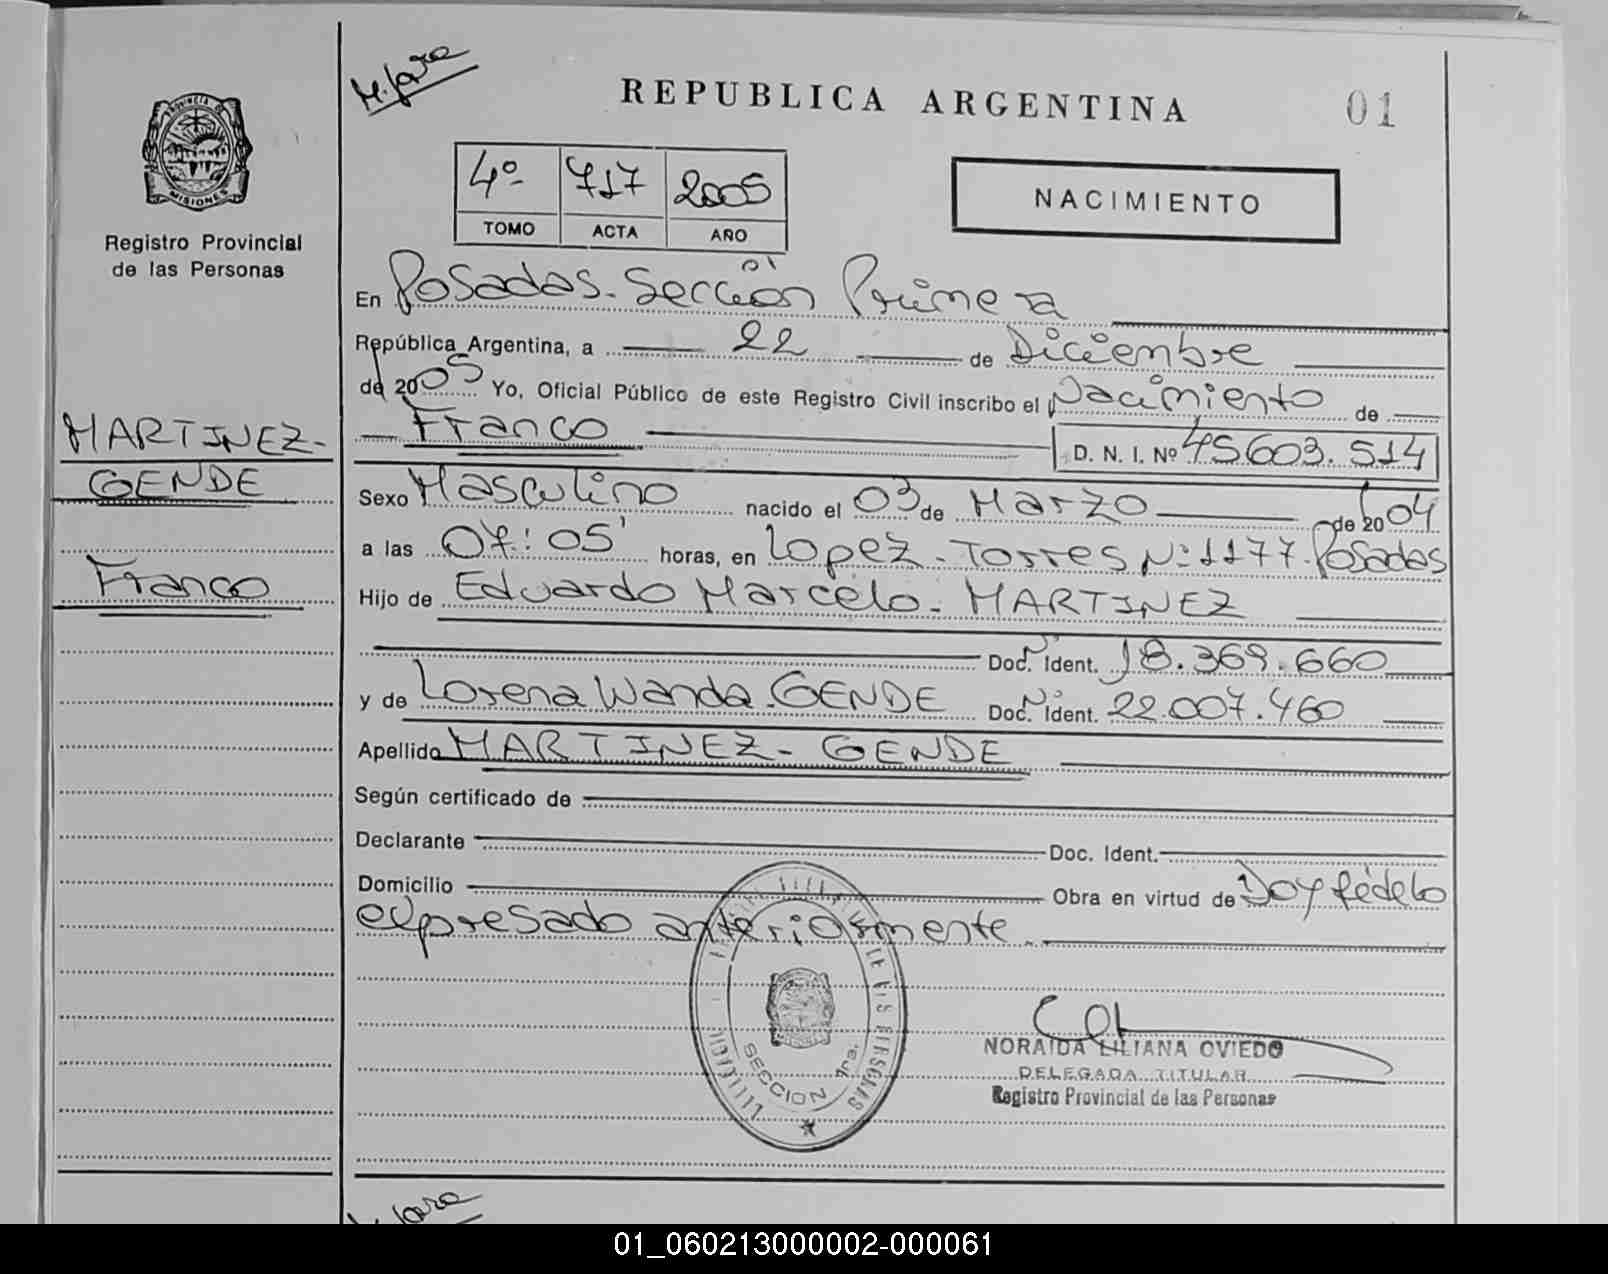 M. Jara
REPUBLICA ARGENTINA
01
PROVINCIA DE
MISIONES
Registro Provincial
de las Personas
4º 717 2005
TOMO ACTA AÑO
NACIMIENTO
En Posadas - Sección Primera
República Argentina, a 22 de Diciembre
de 2005 Yo, Oficial Público de este Registro Civil inscribo el Nacimiento de
Franco D. N. I. Nº 45603.514
MARTINEZ-
GENDE
Franco
Sexo Masculino nacido el 03 de Marzo de 2004
a las 07:05' horas, en Lopez Torres Nº 1177-Posadas
Hijo de Eduardo Marcelo - MARTINEZ
Doc. Nº Ident. 18.369.660
y de Lorena Wanda - GENDE Doc. Nº Ident. 22.007.460
Apellido MARTINEZ - GENDE
Según certificado de
Declarante Doc. Ident.
Domicilio Obra en virtud de Doy fé de lo
expresado anteriormente
DE LAS PERSONAS
SECCION 1ra.
NORAIDA LILIANA OVIEDO
DELEGADA TITULAR
Registro Provincial de las Personas
Jara
01_060213000002-000061